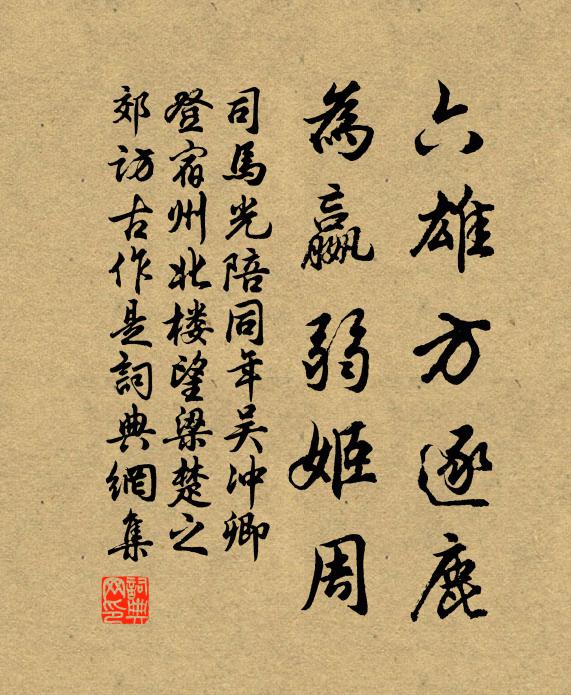 六雄方逐鹿
為嬴弱姬周
司馬光陪同年吴冲卿
登宿州北楼望梁楚之
郊访古作是詞典網集
詞典網印